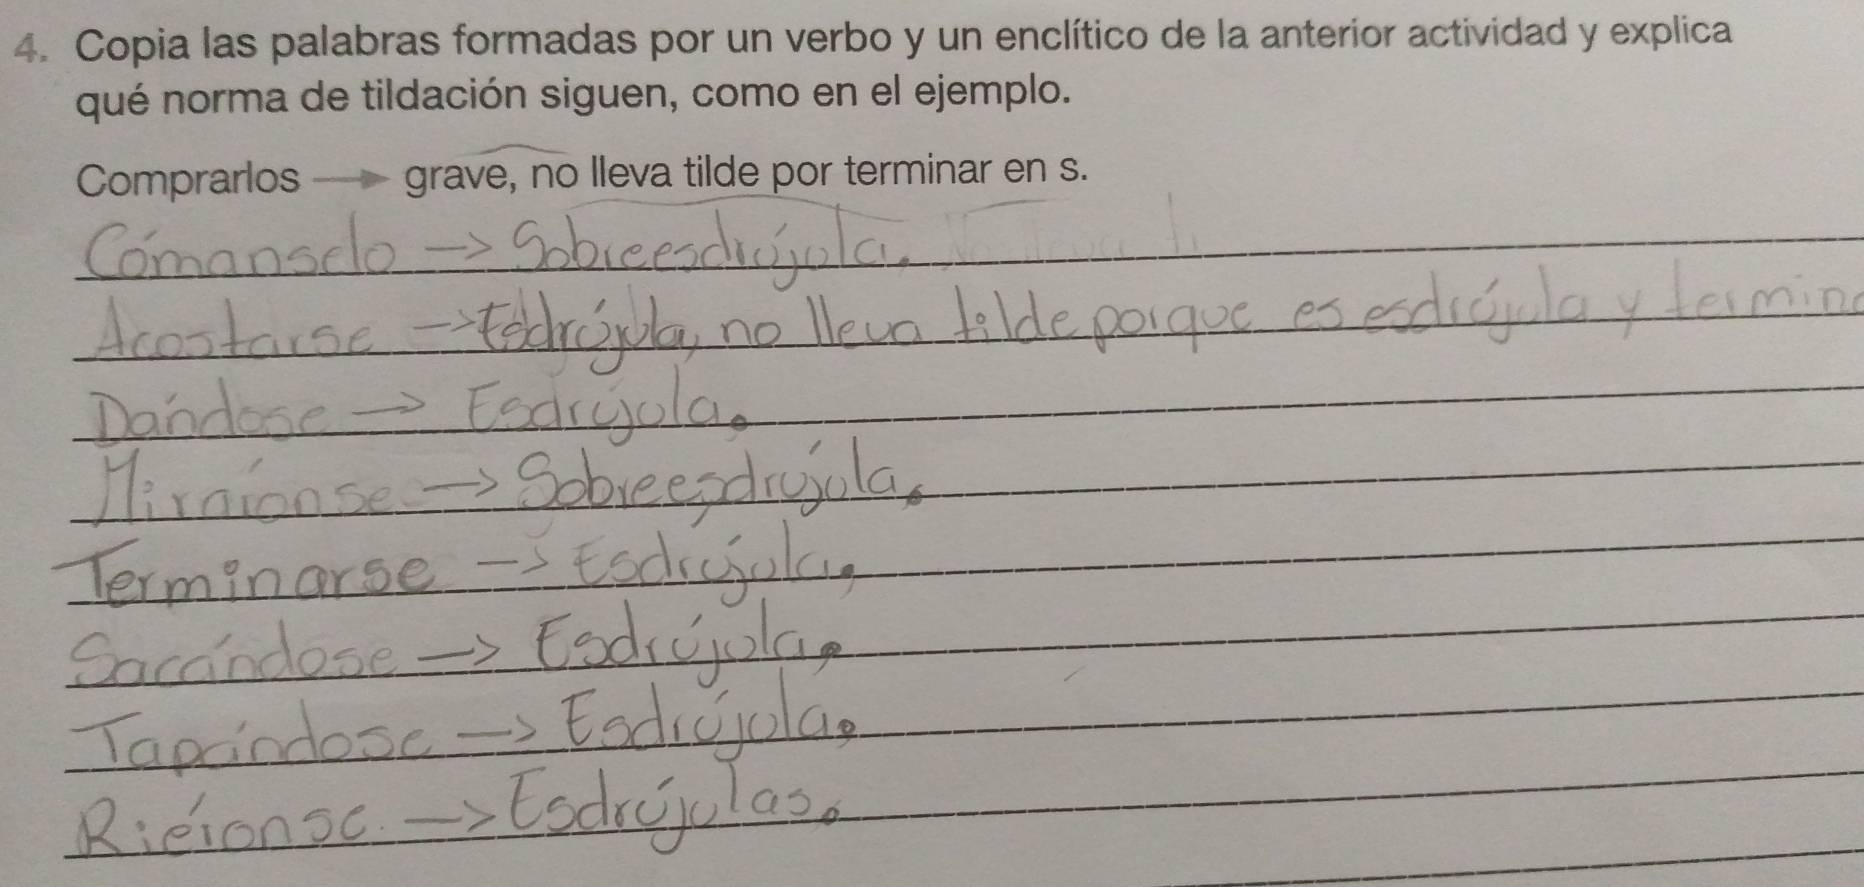 4. Copia las palabras formadas por un verbo y un enclítico de la anterior actividad y explica
qué norma de tildación siguen, como en el ejemplo.
Comprarlos → grave, no lleva tilde por terminar en s.
Cómanselo → Sobreesdrújula.
Acostarse → Esdrújula, no lleva tilde porque es esdrújula y termina
Dándose → Esdrújula.
Miráronse → Sobreesdrújula.
Terminarse → Esdrújula.
Sacándose → Esdrújula.
Tapándose → Esdrújula.
Riéronse. → Esdrújulas.